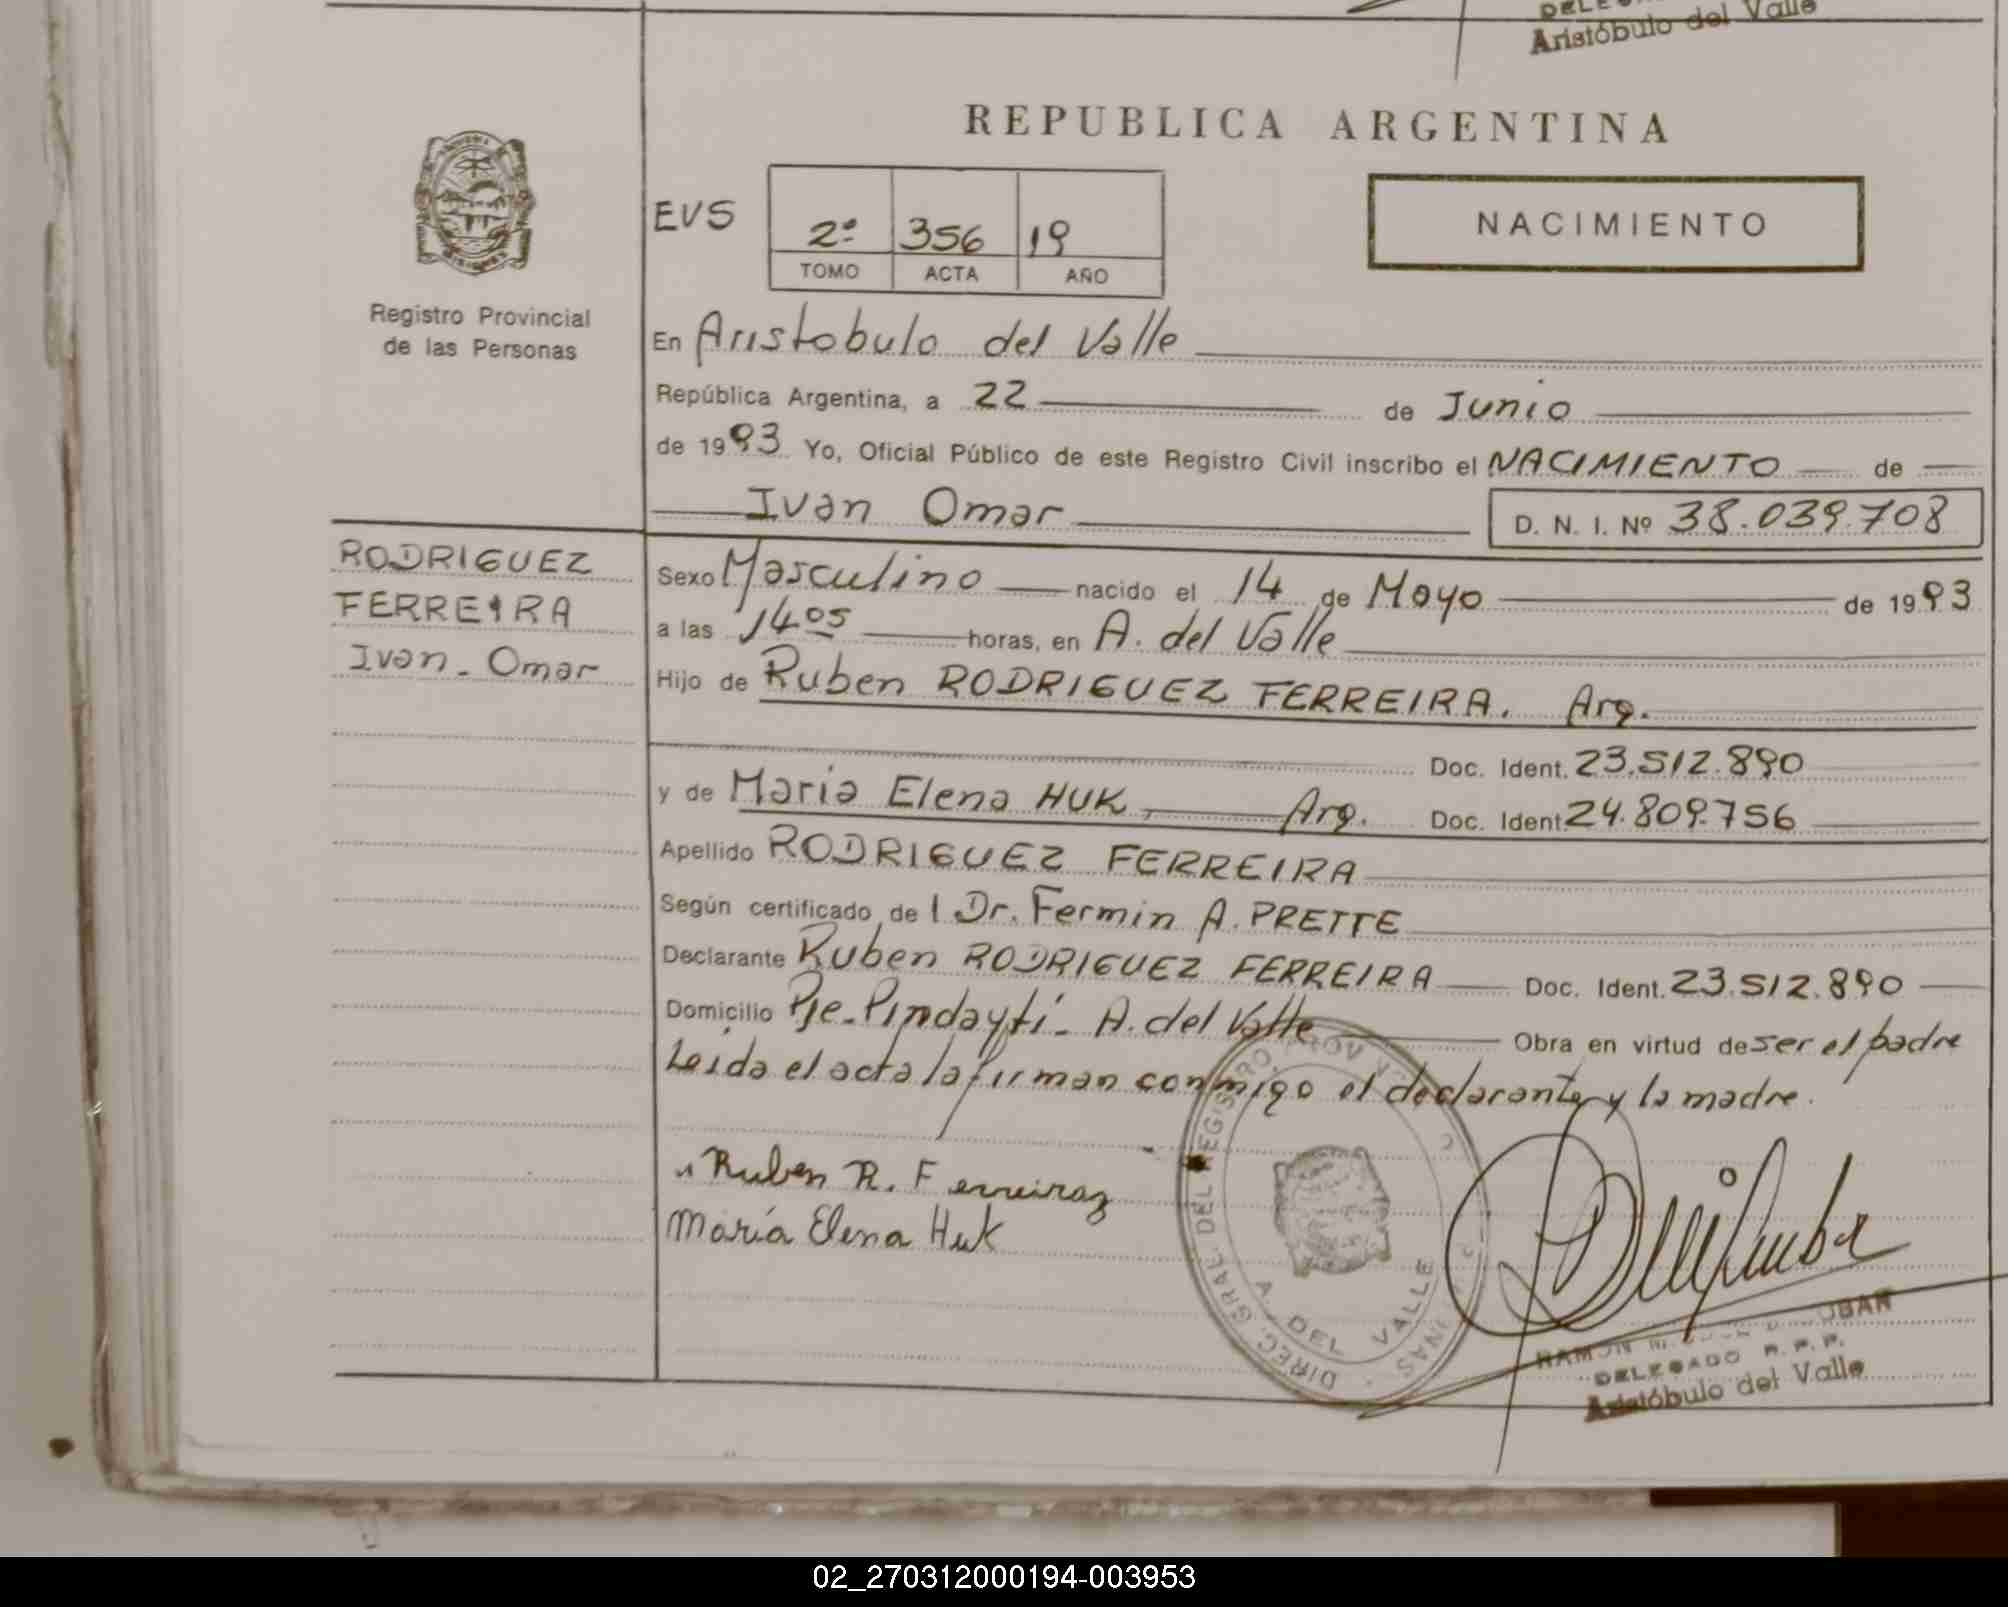 Aristóbulo del Valle
REPUBLICA ARGENTINA
NACIMIENTO
EVS
2º 356 19
TOMO ACTA AÑO
Registro Provincial
de las Personas
En Aristobulo del Valle
República Argentina, a 22 de Junio
de 1993 Yo, Oficial Público de este Registro Civil inscribo el NACIMIENTO de
Ivan Omar D. N. I. Nº 38.039.708
RODRIGUEZ
FERREIRA
Ivan - Omar
Sexo Masculino nacido el 14 de Mayo de 1993
a las 14 05 horas, en A. del Valle
Hijo de Ruben RODRIGUEZ FERREIRA. Arg.
Doc. Ident. 23.512.890
y de Maria Elena HUK, Arg. Doc. Ident. 24.809.756
Apellido RODRIGUEZ FERREIRA
Según certificado de l Dr. Fermin A. PRETTE
Declarante Ruben RODRIGUEZ FERREIRA Doc. Ident. 23.512.890
Domicilio Pje. Pindaytí - A. del Valle Obra en virtud de ser el padre
Leida el acta la firman conmigo el declarante y la madre.
Ruben R. Ferreira
María Elena Huk
DIREC. GRAL. DEL REGISTRO PROV.
A. DEL VALLE
RAMON
DELEGADO R. P. P.
Aristóbulo del Valle
02_270312000194-003953